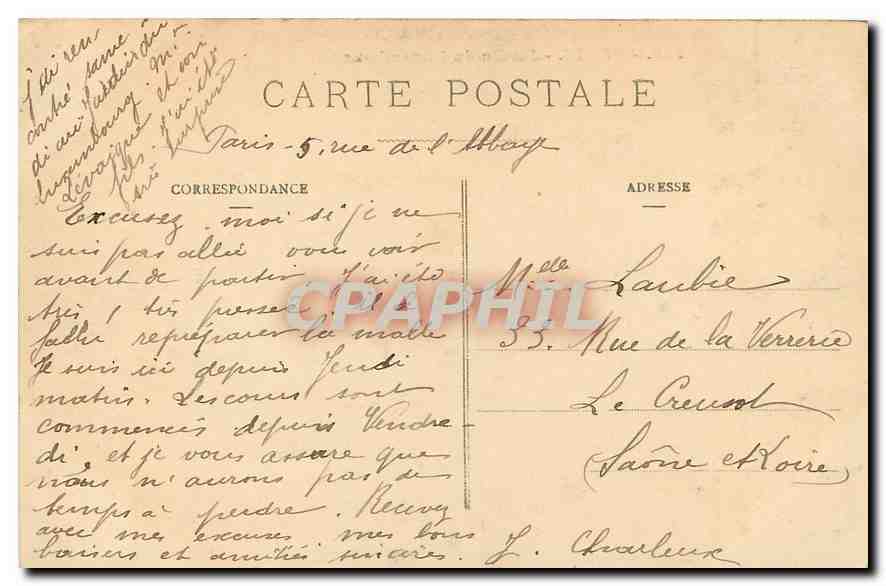 CARTE POSTALE
Paris - 5, rue de l'Abbaye
CORRESPONDANCE
ADRESSE
Excusez moi si je ne
suis pas allée vous voir
avant de partir. J'ai été
très, très pressée. Il a
fallu repréparer la malle
Je suis ici depuis Jeudi
matin. Les cours sont
commencés depuis Vendre-
di, et je vous assure que
nous n'aurons pas de
temps à perdre. Recevez
avec mes excuses mes bons
baisers et amitiés sincères.
J. Charleux
J'ai ren
contré same
di au Jardin du
Luxembourg Mr
Lévaique et son
fils. J'ai été
surpri
sée
Mde Laubie
33. Rue de la Verrerie
Le Creusot
(Saône et Loire)
CPAPHIL